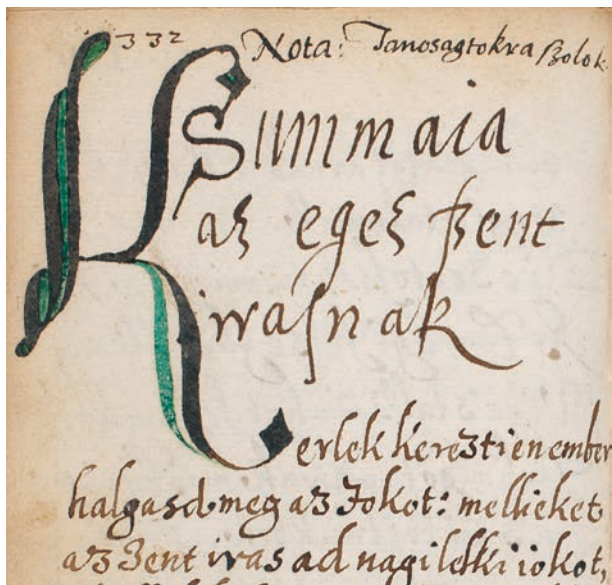 332 Nota: Tanosagtokra szolok.
Summaia
az egez szent
irasnak
Kerlek kereztien ember
halgasd meg az Jokot: mellieket
az zent iras ad nagi lelki iokot,